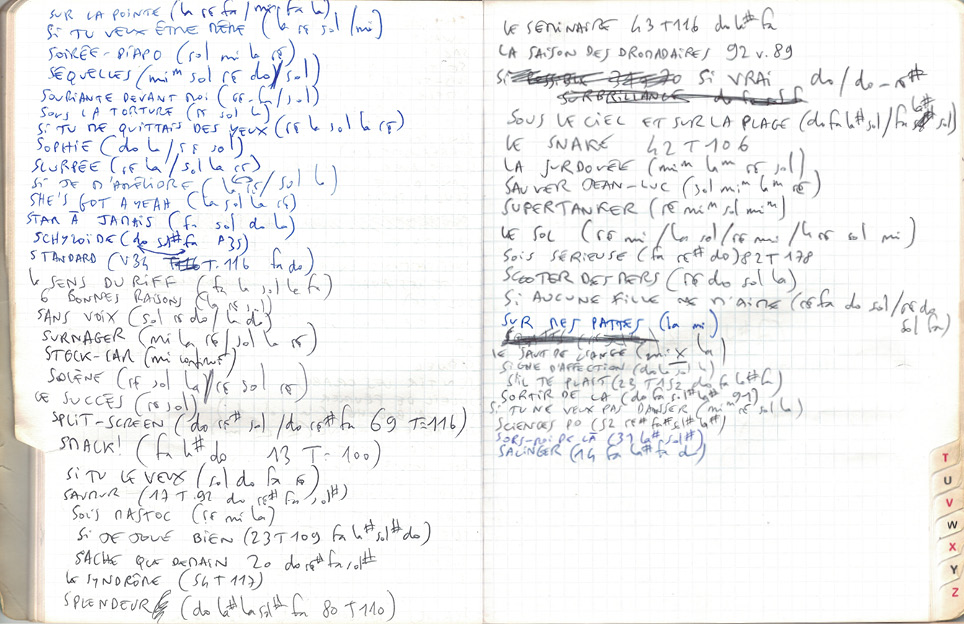 SUR LA POINTE (la ré fa/
SI TU VEUX ÊTRE MÊME (la ré sol/mi)
SOIRÉE-DIAPO (sol mi la ré)
SÉQUELLES (miᵐ sol ré do/sol)
SOURIANTE DEVANT MOI (ré-la/sol)
SOUS LA TORTURE (ré sol la)
SI TU ME QUITTAIS DES YEUX (ré la sol la ré)
SOPHIE (do la/ré sol)
SLURPÉE (ré la/sol la ré)
SI JE M'AMÉLIORE (la ré/sol la)
SHE'S GOT A YEAH (la sol la ré)
STAR À JAMAIS (fa sol do la)
SCHYZOÏDE (do sol# fa A35)
STANDARD (V34 T.116 fa do)
LE SENS DU RIFF (fa la sol la fa)
6 BONNES RAISONS (la ré sol)
SANS VOIX (sol ré do/la do)
SURNAGER (mi la ré/sol la ré)
STOCK-CAR (mi
SOLÈNE (ré sol la/ré sol ré)
LE SUCCÈS (ré sol)
SPLIT-SCREEN (do ré# sol/do ré# fa 69 T=116)
SMACK! (fa la# do 13 T-100)
SI TU LE VEUX (sol do fa ré)
SAVEUR (17 T.92 do ré# fa sol#)
SOIS MASTOC (ré mi la)
SI JE JOUE BIEN (23 T 109 fa la# sol# do)
SACHE QUE DEMAIN 20 do ré# fa sol#
LE SYNDRÔME (54 T 117)
SPLENDEUR (do la# la sol# fa 80 T 110)
LE SÉMINAIRE 43 T 116 do la# fa
LA SAISON DES DROMADAIRES 92 v. 89
SI SI VRAI do/do-ré#
SURBRILLANCE
SOUS LE CIEL ET SUR LA PLAGE (do fa la# sol/fa la# sol)
LE SNAKE 42 T 106
LA SURDOUÉE (miᵐ laᵐ ré sol)
SAUVER JEAN-LUC (sol miᵐ laᵐ ré)
SUPERTANKER (ré miᵐ sol miᵐ)
LE SOL (ré mi/la sol/ré mi/la ré sol mi)
SOIS SÉRIEUSE (fa ré# do) 82 T 178
SCOOTER DES MERS (ré do sol la)
SI AUCUNE FILLE NE M'AIME (ré fa do sol/ré do sol fa)
SUR DES PATTES (la mi)
LE SAUT DE L'ANGE (mi x la)
SIGNE D'AFFECTION (do la sol la)
S'IL TE PLAÎT (23 T 152 do fa la# fa)
SORTIR DE LÀ (do fa sol# la# 91)
SI TU NE VEUX PAS DANSER (miᵐ ré sol la)
SCIENCES PO (52 ré# fa# sol# la#)
SORS-MOI DE LÀ (31 la# sol#)
SALINGER (14 fa la# fa do)
T
U
V
W
X
Y
Z